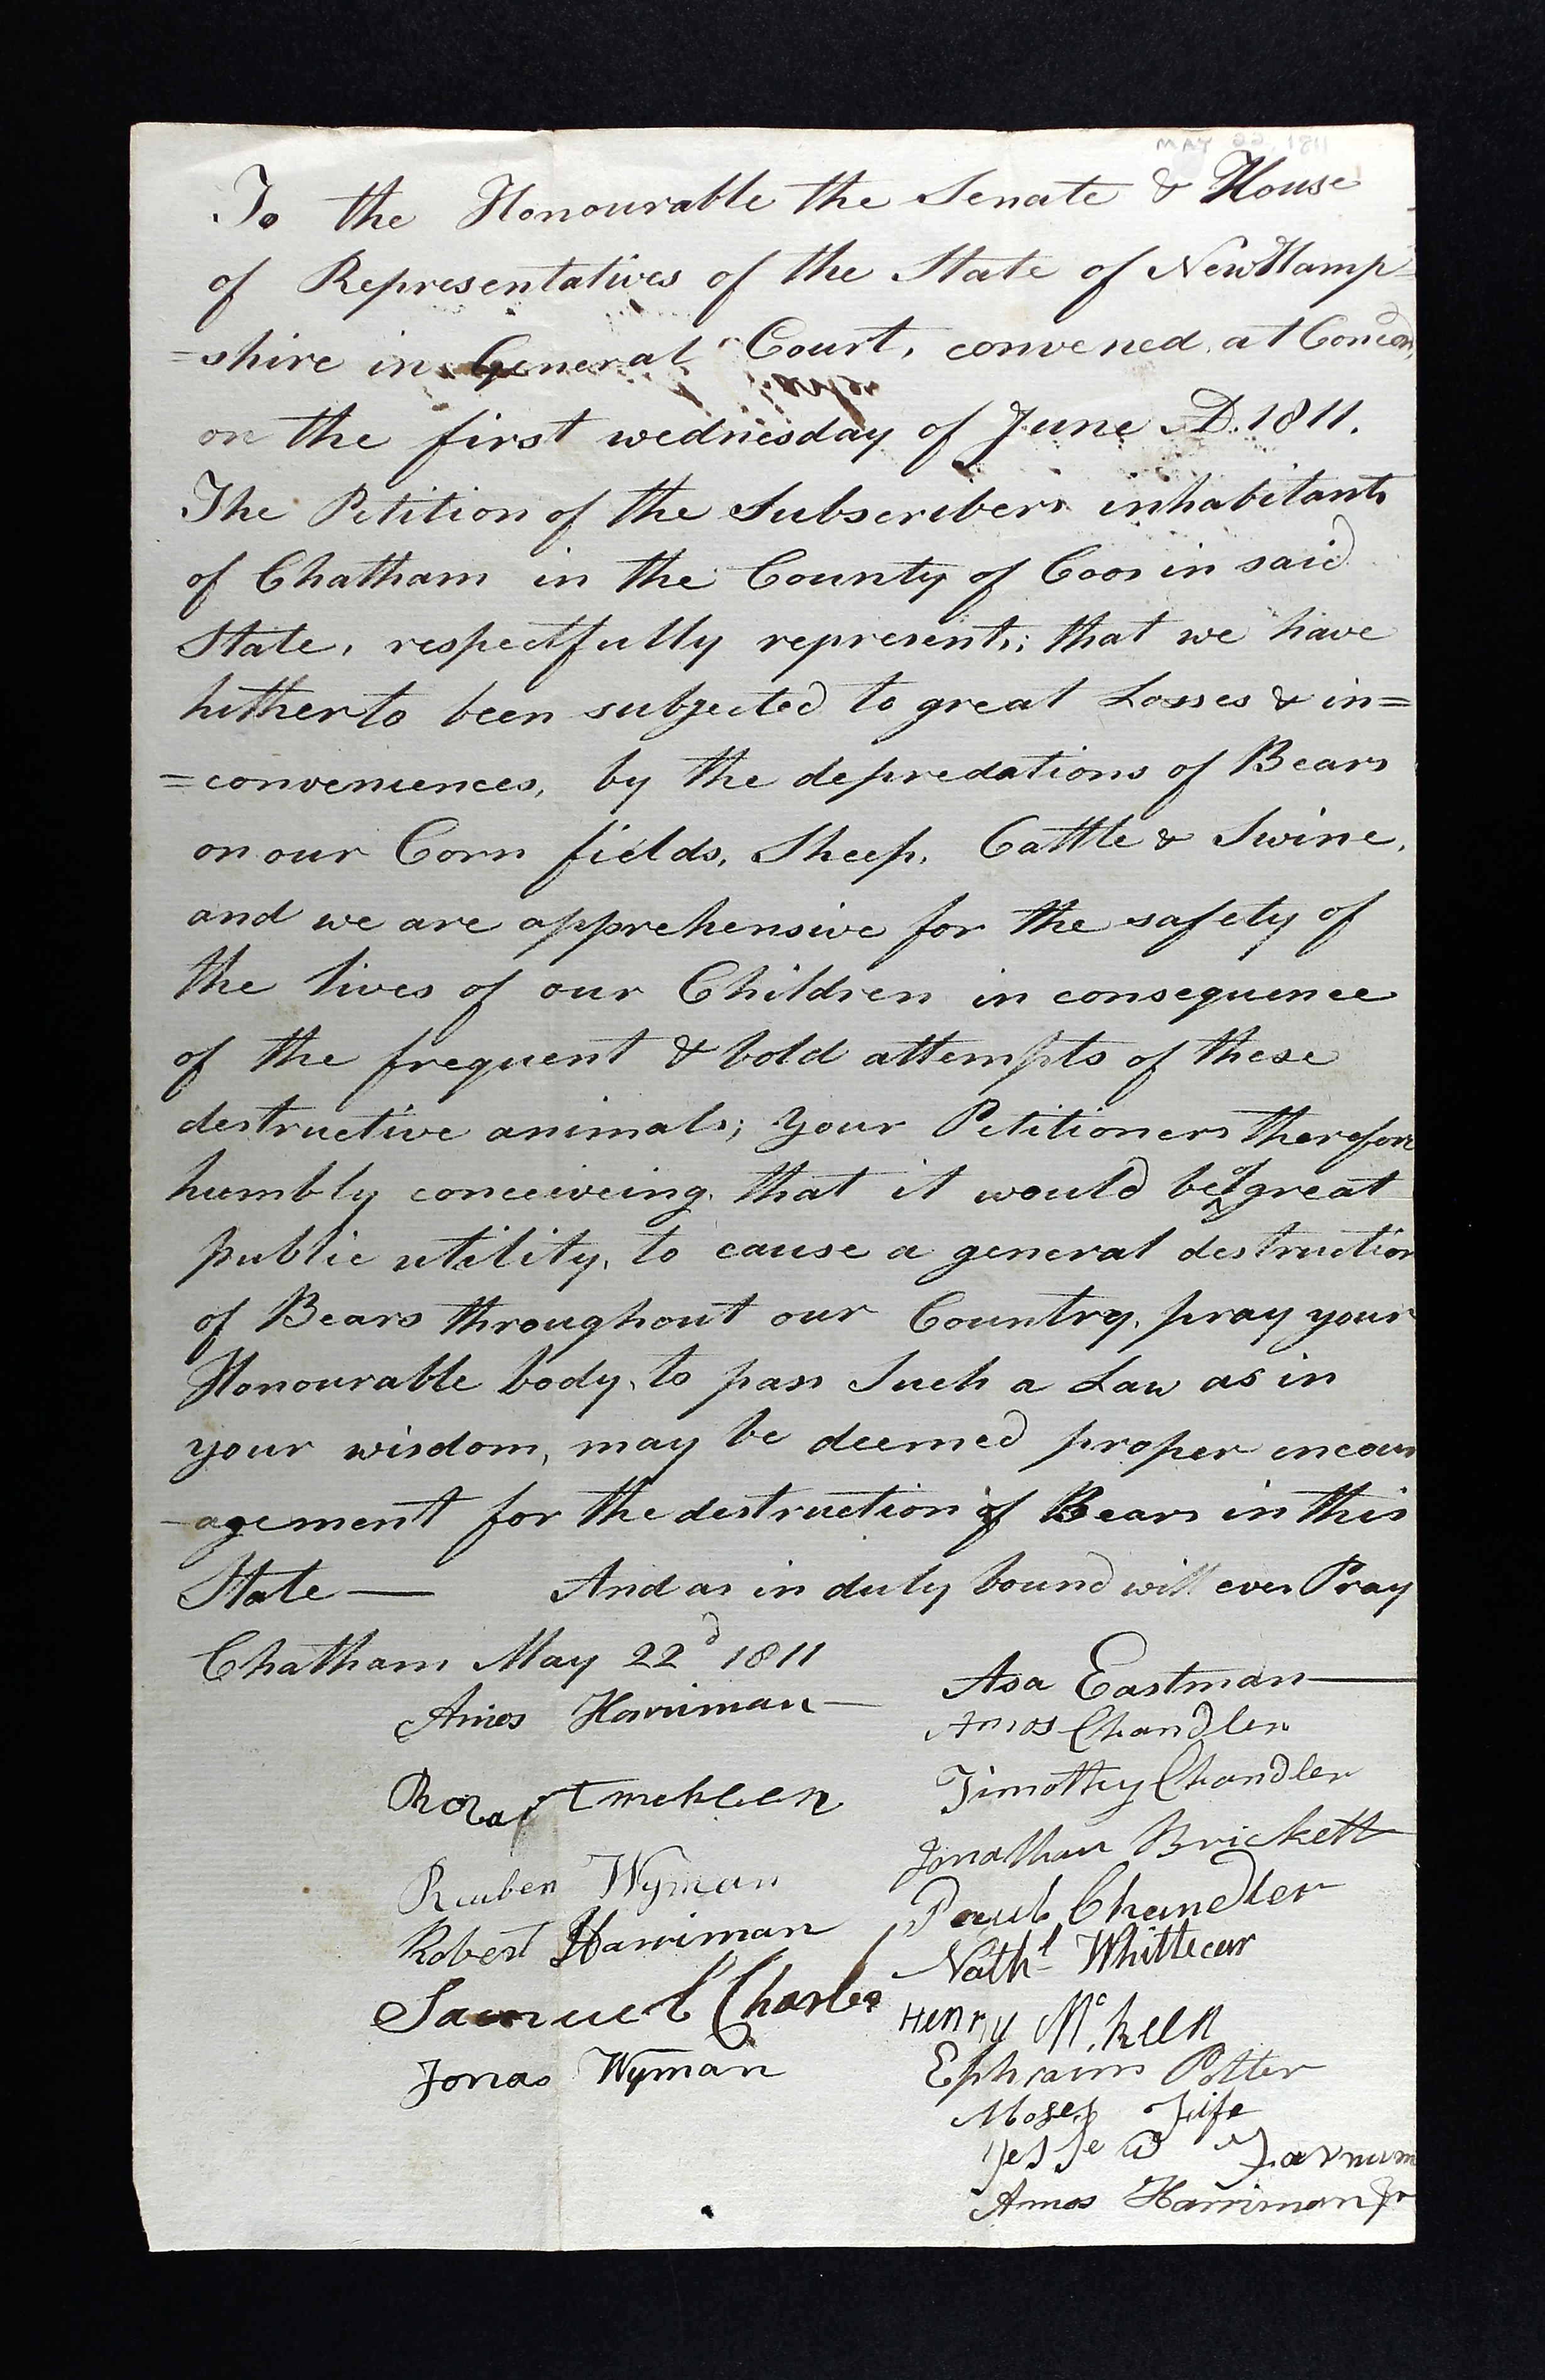 MAY 22, 1811
To the Honourable the Senate & House
of Representatives of the State of New Hamp=
=shire in General Court, convened at Concord
on the first wednesday of June A.D. 1811.
The Petition of the Subscribers inhabitants
of Chatham in the County of Coos in said
State, respectfully represents; that we have
hitherto been subjected to great Losses & in=
=conveniences, by the depredations of Bears
on our Corn fields, Sheep, Cattle & Swine,
and we are apprehensive for the safety of
the lives of our Children in consequence
of the frequent & bold attempts of these
destructive animals; your Petitioners therefore
humbly conceiveing that it would be of great
public utility, to cause a general destruction
of Bears throughout our Country, pray your
Honourable body, to pass Such a Law as in
your wisdom, may be deemed proper encour
-agement for the destruction of Bears in this
State — And as in duty bound will ever Pray
Chatham May 22d 1811
Asa Eastman
Amos Harriman
Amos Chandler
Timothy Chandler
Jonathan Brickett
Reuben Wyman
Paul Chandler
Robert Harriman
Nathl Whittecar
Samuel Charles
Henry Mc.Keen
Jonas Wyman
Ephraim Potter
Moses Fife
Jesse W Farnum
Amos Harriman Jr